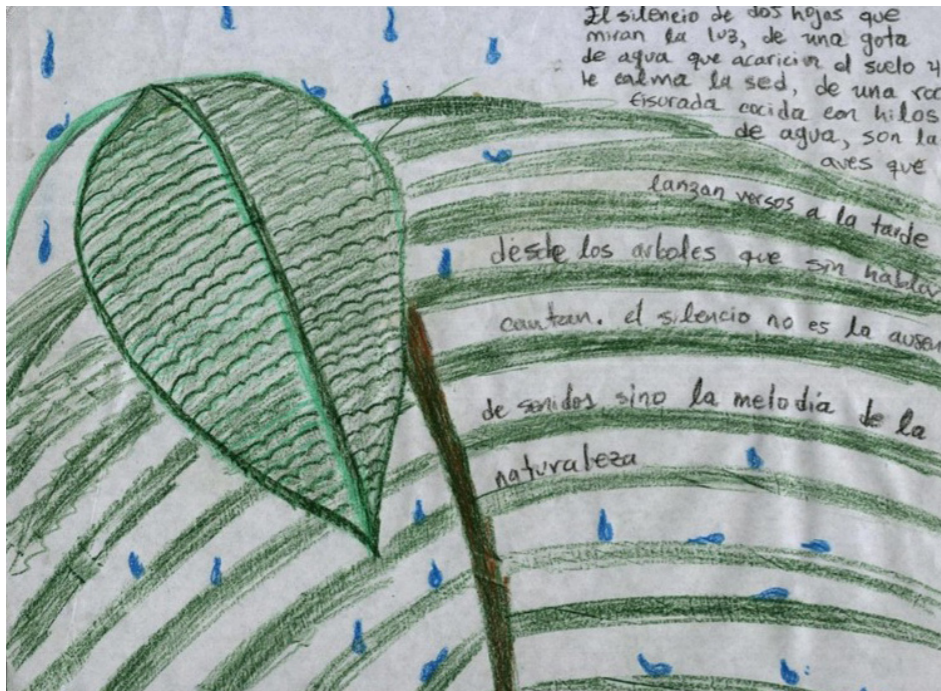 El silencio de dos hojas que
miran la luz, de una gota
de agua que acarician el suelo y
le calma la sed, de una roc
fisurada cocida con hilos
de agua, son la
aves que
lanzan versos a la tarde
desde los arboles que sin hablar
cantan. el silencio no es la ausen
de sonidos sino la melodía de la
naturaleza